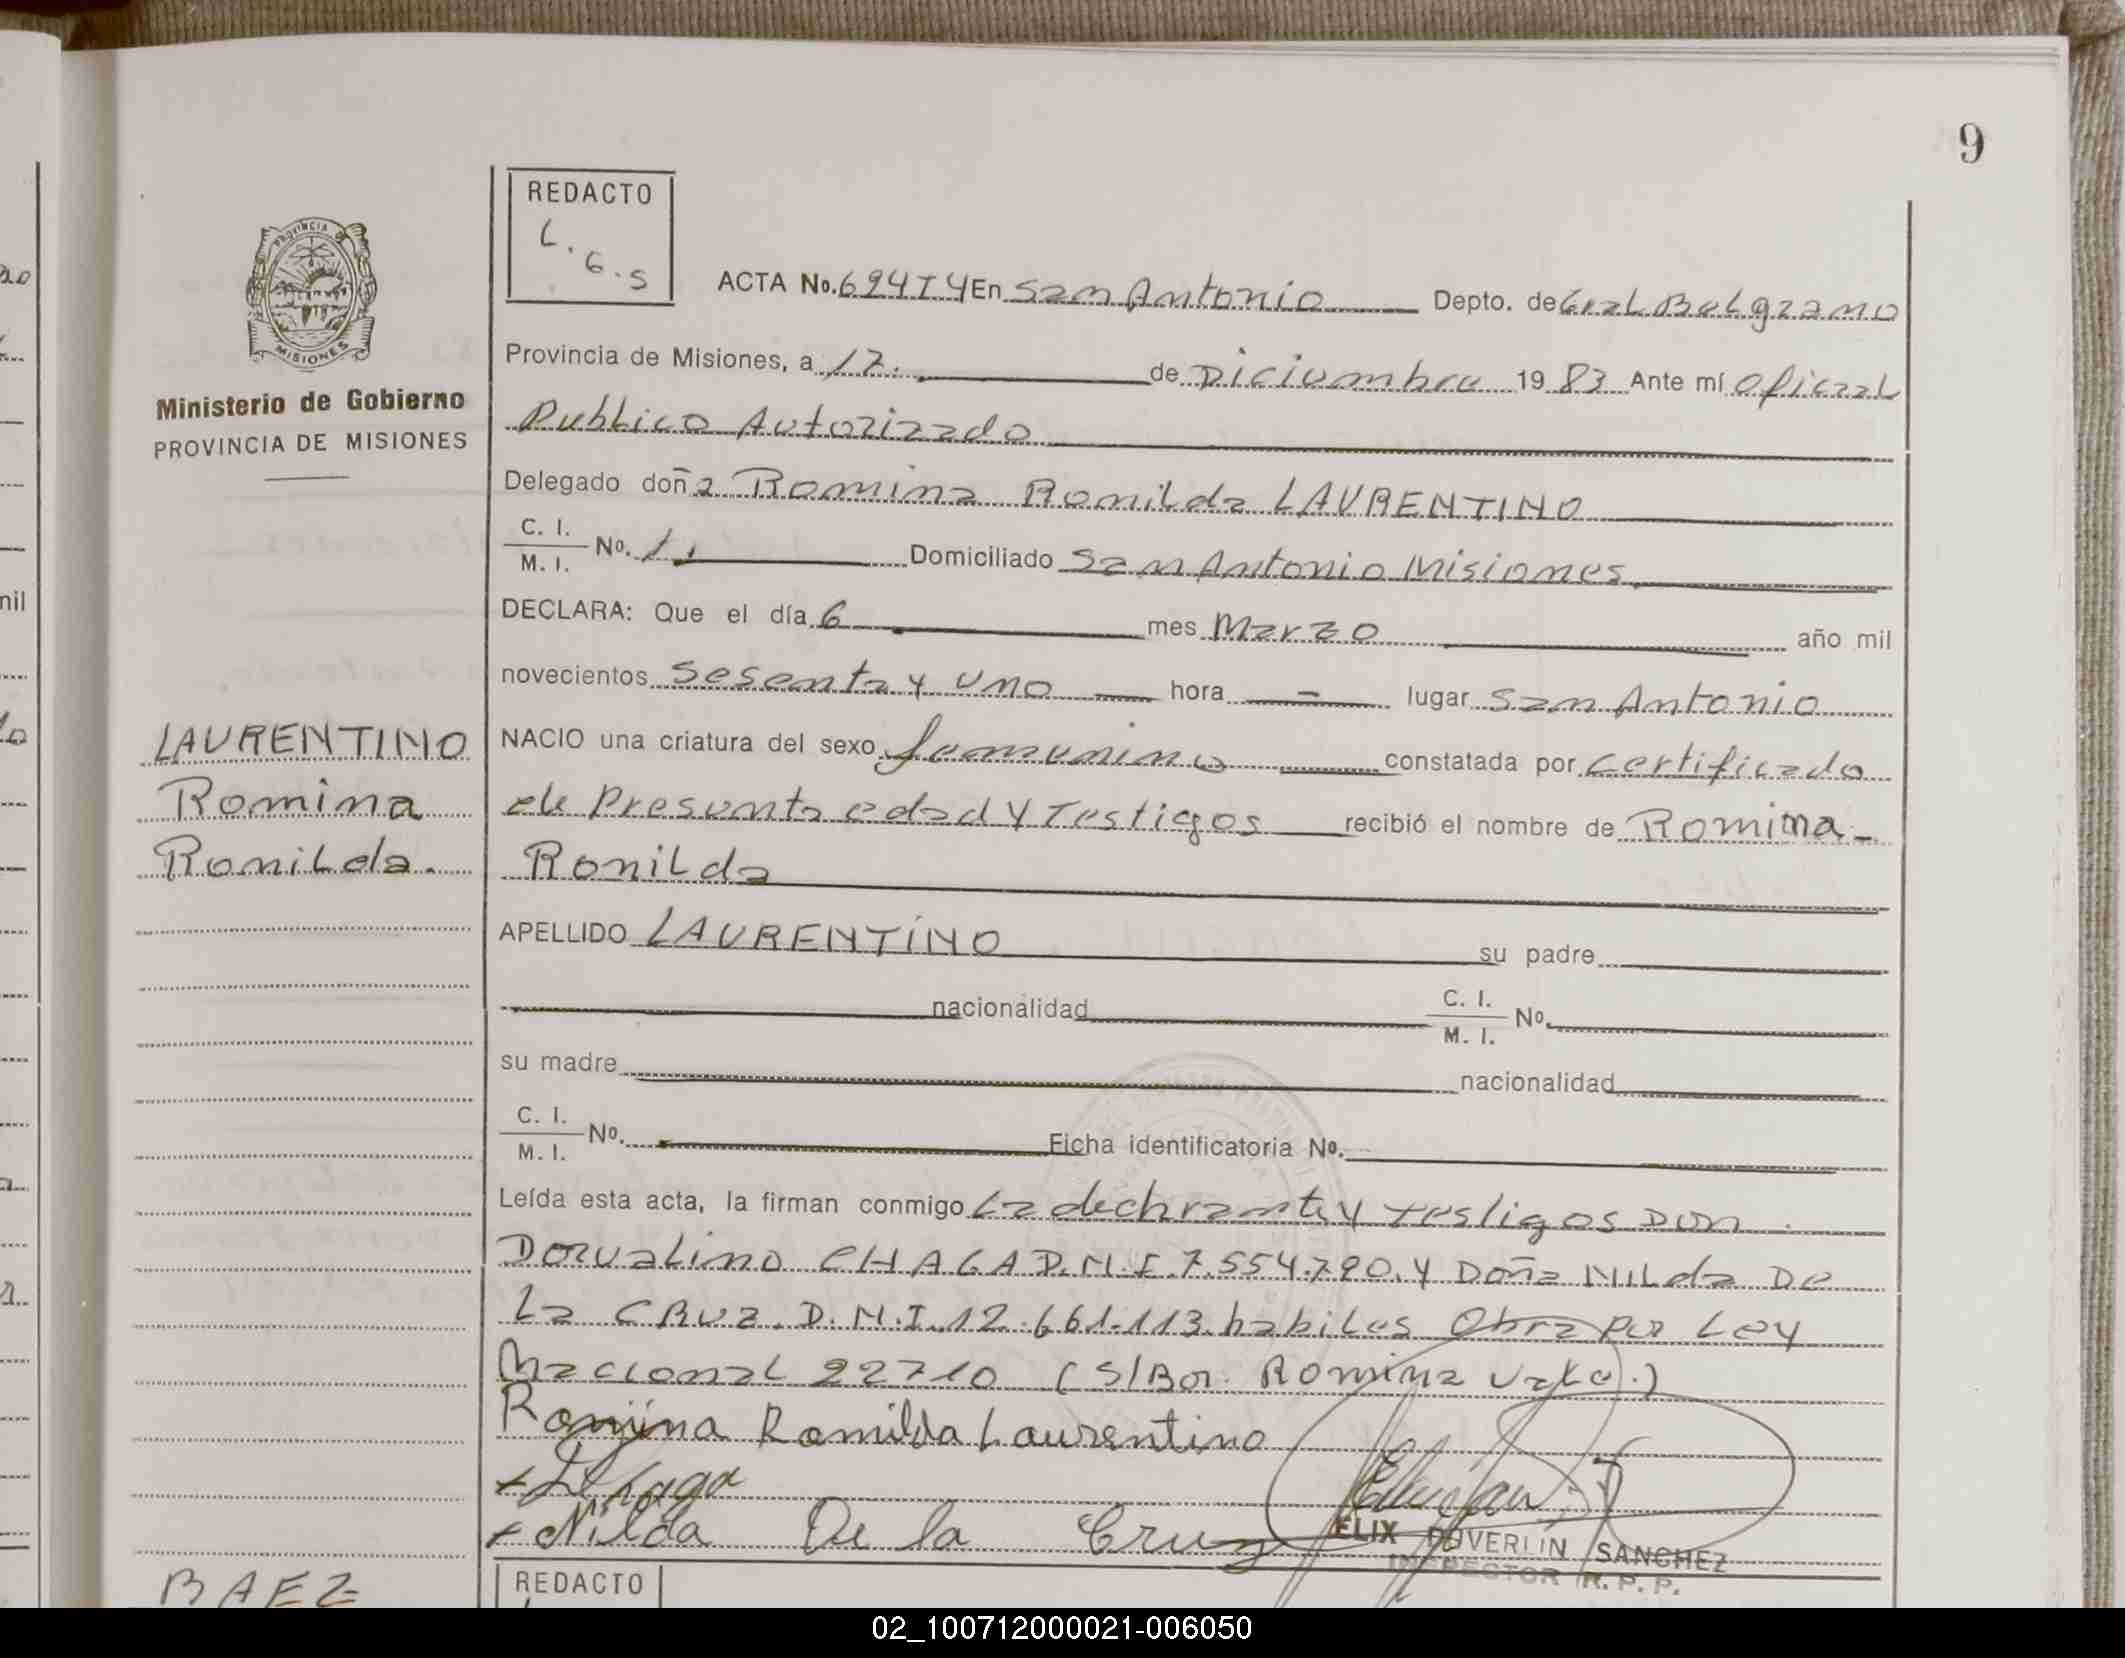 9
REDACTO
L.G.S
ACTA No. 694T4 En San Antonio Depto. de Gral Belgrano
Provincia de Misiones, a 17. de Diciembre 1983 Ante mí Oficial
Publico Autorizado
PROVINCIA
MISIONES
Ministerio de Gobierno
PROVINCIA DE MISIONES
Delegado doña Romina Ronilda LAURENTINO
C. I.
M. I. No. Domiciliado San Antonio Misiones
DECLARA: Que el día 6 mes Marzo año mil
novecientos Sesenta y Uno hora - lugar San Antonio
LAURENTINO
Romina
Ronilda.
NACIO una criatura del sexo femenino constatada por certificado
de Presunta edad y Testigos recibió el nombre de Romina-
Ronilda
APELLIDO LAURENTINO su padre
nacionalidad C. I.
M. I. No.
su madre nacionalidad
C. I.
M. I. No. Ficha identificatoria No.
Leída esta acta, la firman conmigo La declarante y testigos Don
Dorvalino CHAGA D.N.I. 7.554.790. y Doña NILda De
La CRUZ. D.N.I. 12.661.113. habiles Obra por Ley
Nacional 22710 (S/Bor. Romina Vale.)
Romina Ronilda Laurentino
Nilda De la Cruz
ELIX DUVERLIN SANCHEZ
INSPECTOR R. P. P.
BAEZ
REDACTO
02_100712000021-006050